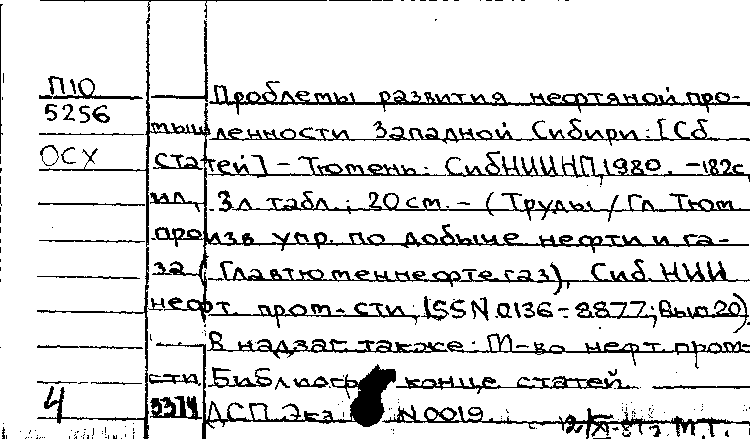 П10
5256
ОСХ
Проблемы развития нефтяной про-
мышленности Западной Сибири: [Сб.
статей] - Тюмень: СибНИИНП, 1980. - 182с,
ил., 3л табл.; 20см. - (Труды / Гл. Тюм
произв упр. по добыче нефти и га-
за (Главтюменнефтегаз), Сиб. НИИ
нефт. пром-сти, ISSN 0136-8877; Вып. 20)
В надзаг также: М-во нефт. пром-
сти Библиогр конце статей
4
ДСП Экз N 0019
М.Т.